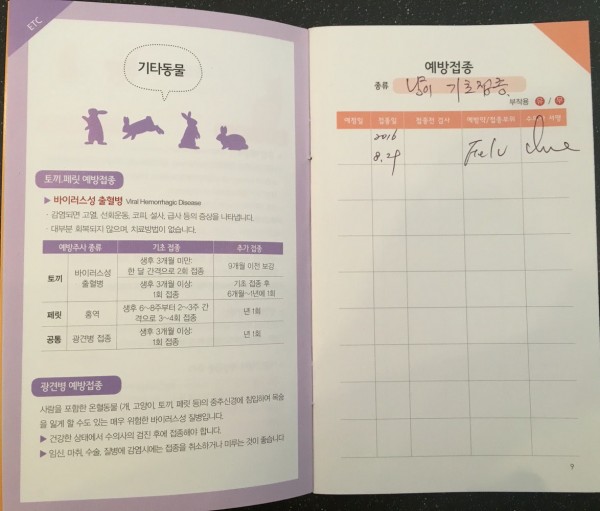 ETC
기타동물
토끼.페릿 예방접종
▶ 바이러스성 출혈병 Viral Hemorrhagic Disease
· 감염되면 고열, 선회운동, 코피, 설사, 급사 등의 증상을 나타냅니다.
· 대부분 회복되지 않으며, 치료방법이 없습니다.
예방주사 종류 기초 접종 추가 접종
토끼 바이러스성 출혈병 생후 3개월 미만: 한 달 간격으로 2회 접종 9개월 이전 보강
생후 3개월 이상: 1회 접종 기초 접종 후 6개월~1년에 1회
페릿 홍역 생후 6~8주부터 2~3주 간격으로 3~4회 접종 년 1회
공통 광견병 접종 생후 3개월 이상: 1회 접종 년 1회
광견병 예방접종
사람을 포함한 온혈동물 (개, 고양이, 토끼, 페릿 등)의 중추신경에 침입하여 목숨
을 잃게 할 수도 있는 매우 위험한 바이러스성 질병입니다.
▶ 건강한 상태에서 수의사의 검진 후에 접종해야 합니다.
▶ 임신, 마취, 수술, 질병에 감염시에는 접종을 취소하거나 미루는 것이 좋습니다
예방접종
종류 기초접종
부작용 유 / 무
예정일 접종일 접종전 검사 예방약/접종부위 서명
2016
8.29 FeLV
7